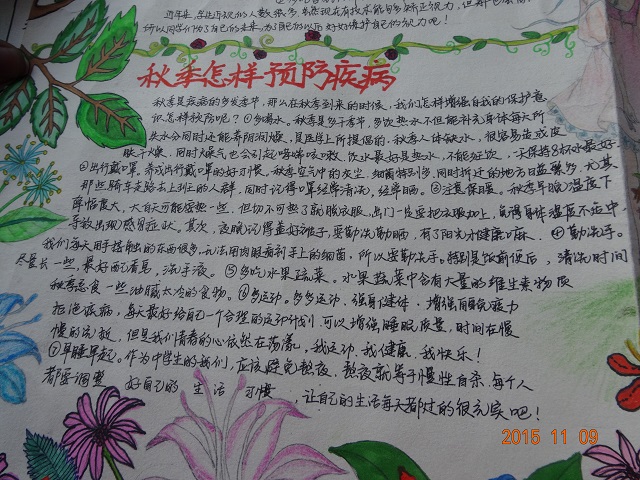 近年来,学生近视的人数很多,虽然现在有技术能够矫正视力,但
所以同学们为了自己的未来,为了自己的以后好好保护自己的视力吧!
秋季怎样预防疾病
秋季是疾病的多发季节,那么在秋季到来的时候,我们怎样增强自我的保护意
识,怎样秋防呢?①多喝水。秋季是多干季节,多饮热水不但能补充身体每天所
失水分同时还能养阴润燥,是医学上所提倡的,秋季人体缺水,很容易造成皮
肤干燥,同时大燥气也会引起咳嗽,饮水最好是热水,不能狂饮,一天保持8杯水最好
②出行戴口罩。养成出行戴口罩的好习惯,秋季空气中的灰尘,细菌特别多,同时拆迁的地方日益增多,尤其
那些骑车走路去上班的人群,同时记得口罩经常清洗,经常晒。③注意保暖。秋季早晚温度下
降幅度大,大白天可能会热一些,但切不可热了就脱衣服,出门一定要把衣服加上,免得身体温度不适中,
导致出现感冒症状。其次,夜晚记得盖好被子,要勤洗勤晒,有了阳光才健康嘛.④勤洗手。
我们每天用手接触的东西很多,无法用肉眼看到手上的细菌,所以要勤洗手。特别是饭前便后,清洗时间
尽量长一些,最好配香皂,洗手液。⑤多吃水果蔬菜。水果蔬菜中含有大量的维生素物质
秋季忌食一些油腻太冷的食物。⑥多运动。多多运动,强身健体,增强自身免疫力
拒绝疾病,每天最好给自己一个合理的运动计划,可以增强睡眠质量,时间在慢
慢的流逝,但是我们青春的心依然在荡漾,我运动.我健康.我快乐!
⑦早睡早起。作为中学生的我们,应该避免熬夜,熬夜就等于慢性自杀.每个人
都要调整 好自己的 生活 习惯 ,让自己的生活每天都过的很充实吧!
2015 11 09